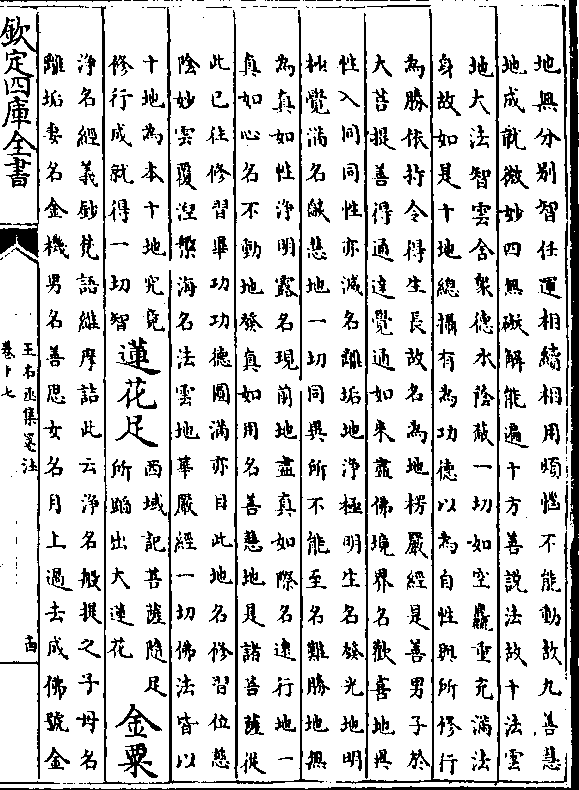 地無分别智任運相續相用煩惱不能動故九善慧
地成就微妙四無礙解能遍十方善説法故十法雲
地大法智雲含衆德水蔭蔽一切如空麤重充滿法
身故如是十地總攝有為功德以為自性與所修行
為勝依持令得生長故名為地楞嚴經是善男子於
大菩提善得通達覺通如來盡佛境界名歡喜地異
性入同同性亦滅名離垢地淨極明生名發光地明
極覺滿名燄慧地一切同異所不能至名難勝地無
為真如性淨明露名現前地盡真如際名逺行地一
真如心名不動地發真如用名善慧地是諸菩薩從
此已往修習畢功功德圓滿亦目此地名修習位慈
陰妙雲覆涅槃海名法雲地華嚴經一切佛法皆以
十地為本十地究竟
修行成就得一切智
蓮花足
西域記菩薩隨足
所蹈出大蓮花
金粟
淨名經義鈔梵語維摩詰此云淨名般提之子母名
離垢妻名金機男名善思女名月上過去成佛號金
欽定四庫全書
王右丞集箋注
卷十七
十四